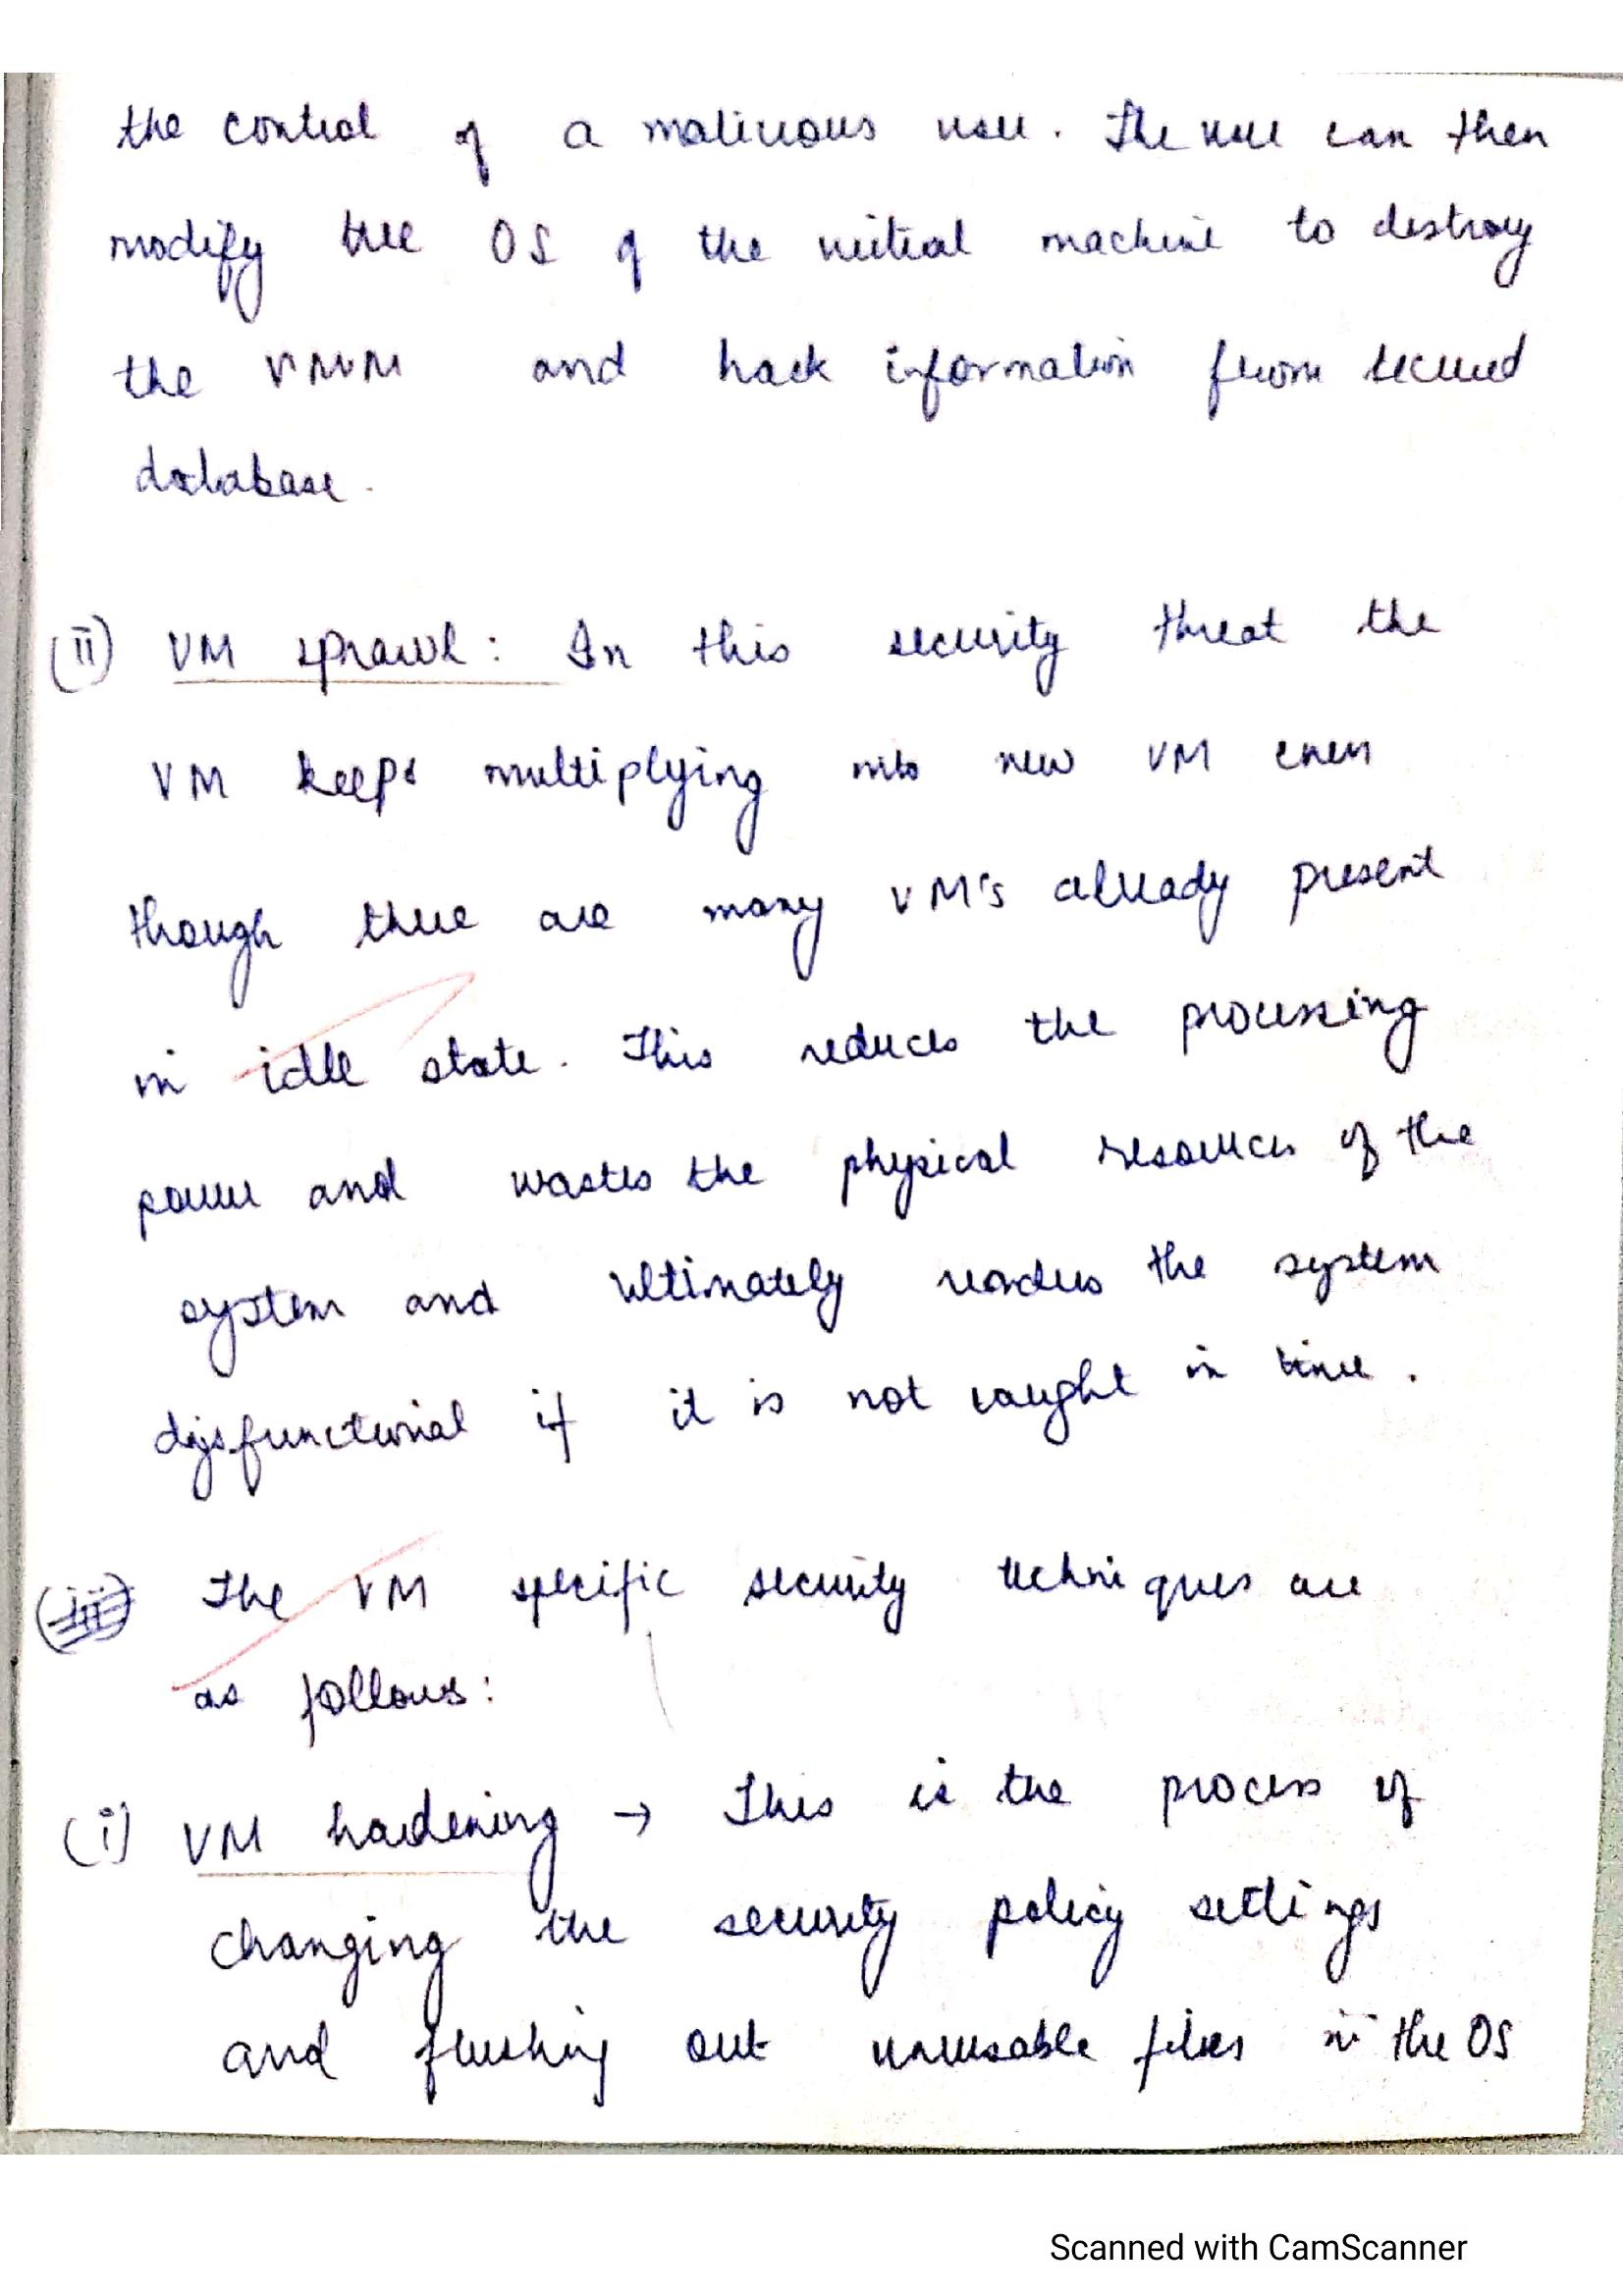 the control of a malicious user. The user can then
modify the OS of the virtual machine to destroy
the VMM and hack information from secured
database.
(ii) VM sprawl: In this security threat the
VM keeps multiplying into new VM even
though there are many VM's already present
in idle state. This reduces the processing
power and wastes the physical resources of the
system and ultimately renders the system
dysfunctional if it is not caught in time.
The VM specific security techniques are
as follows:
(i) VM hardening → This is the process of
changing the security policy settings
and flushing out unusable files in the OS
Scanned with CamScanner